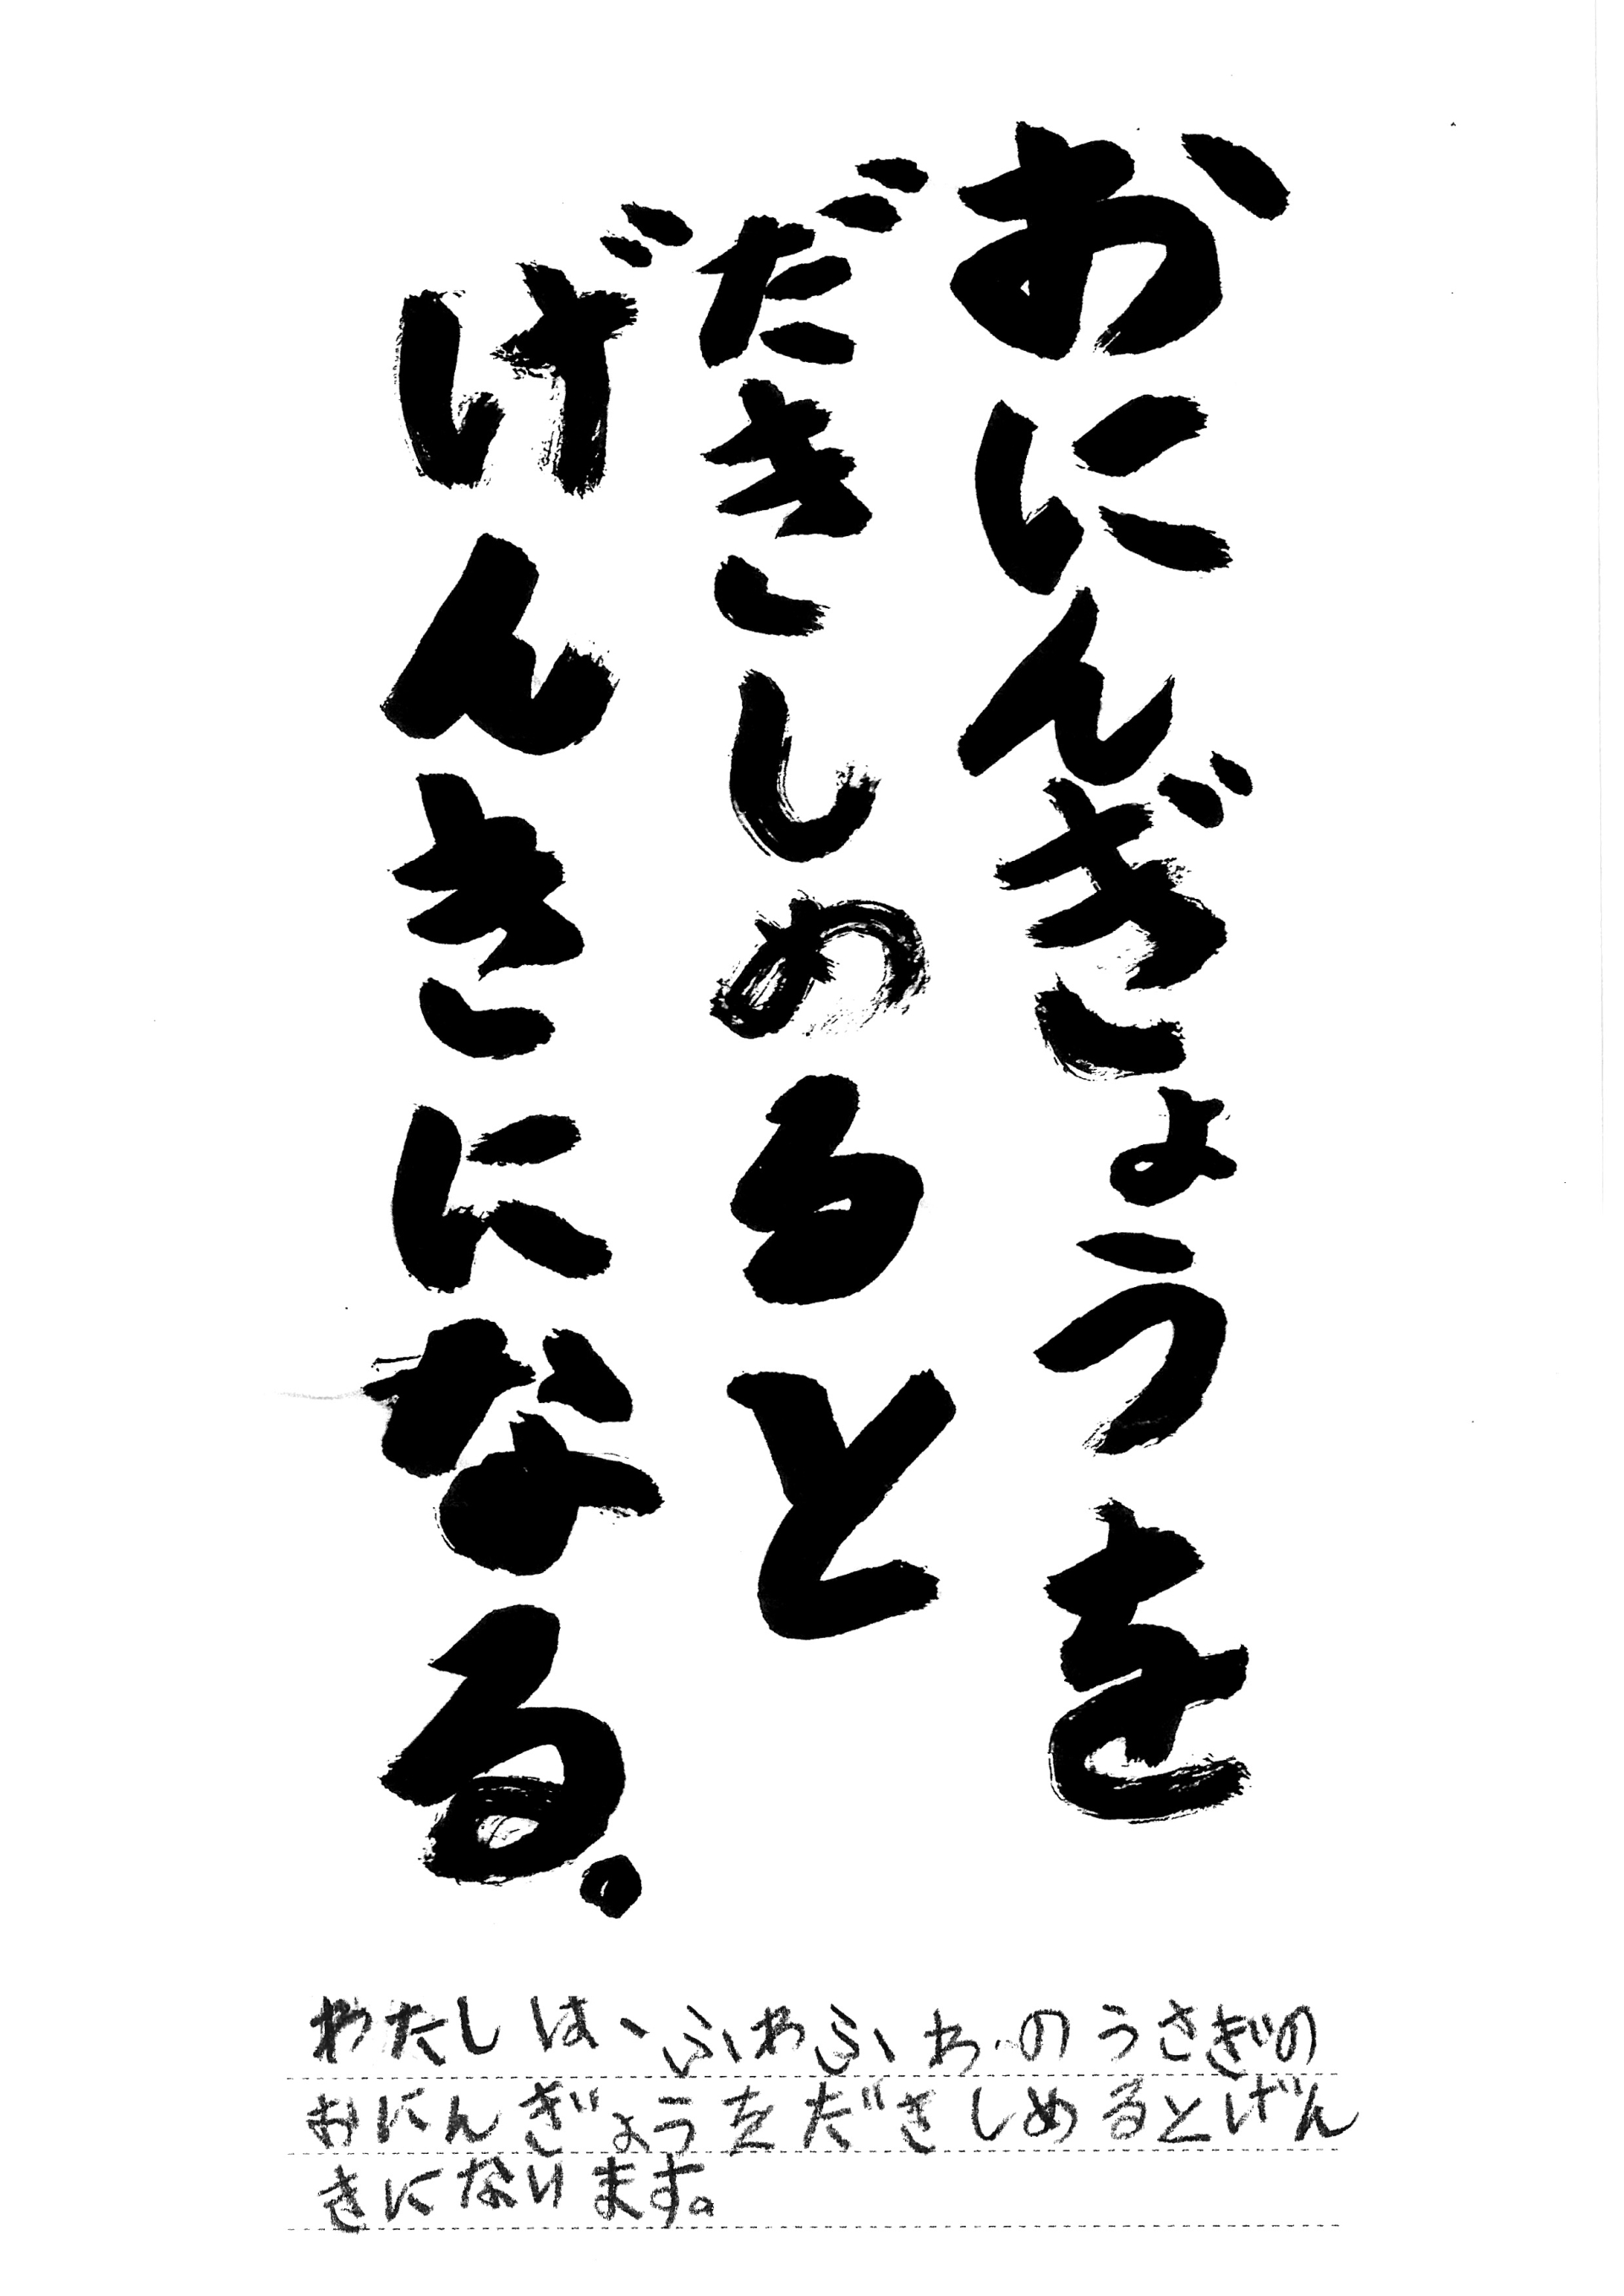 おにんぎょうを
だきしめると
げんきになる。
わたしは、ふわふわのうさぎの
おにんぎょうをだきしめるとげん
きになります。